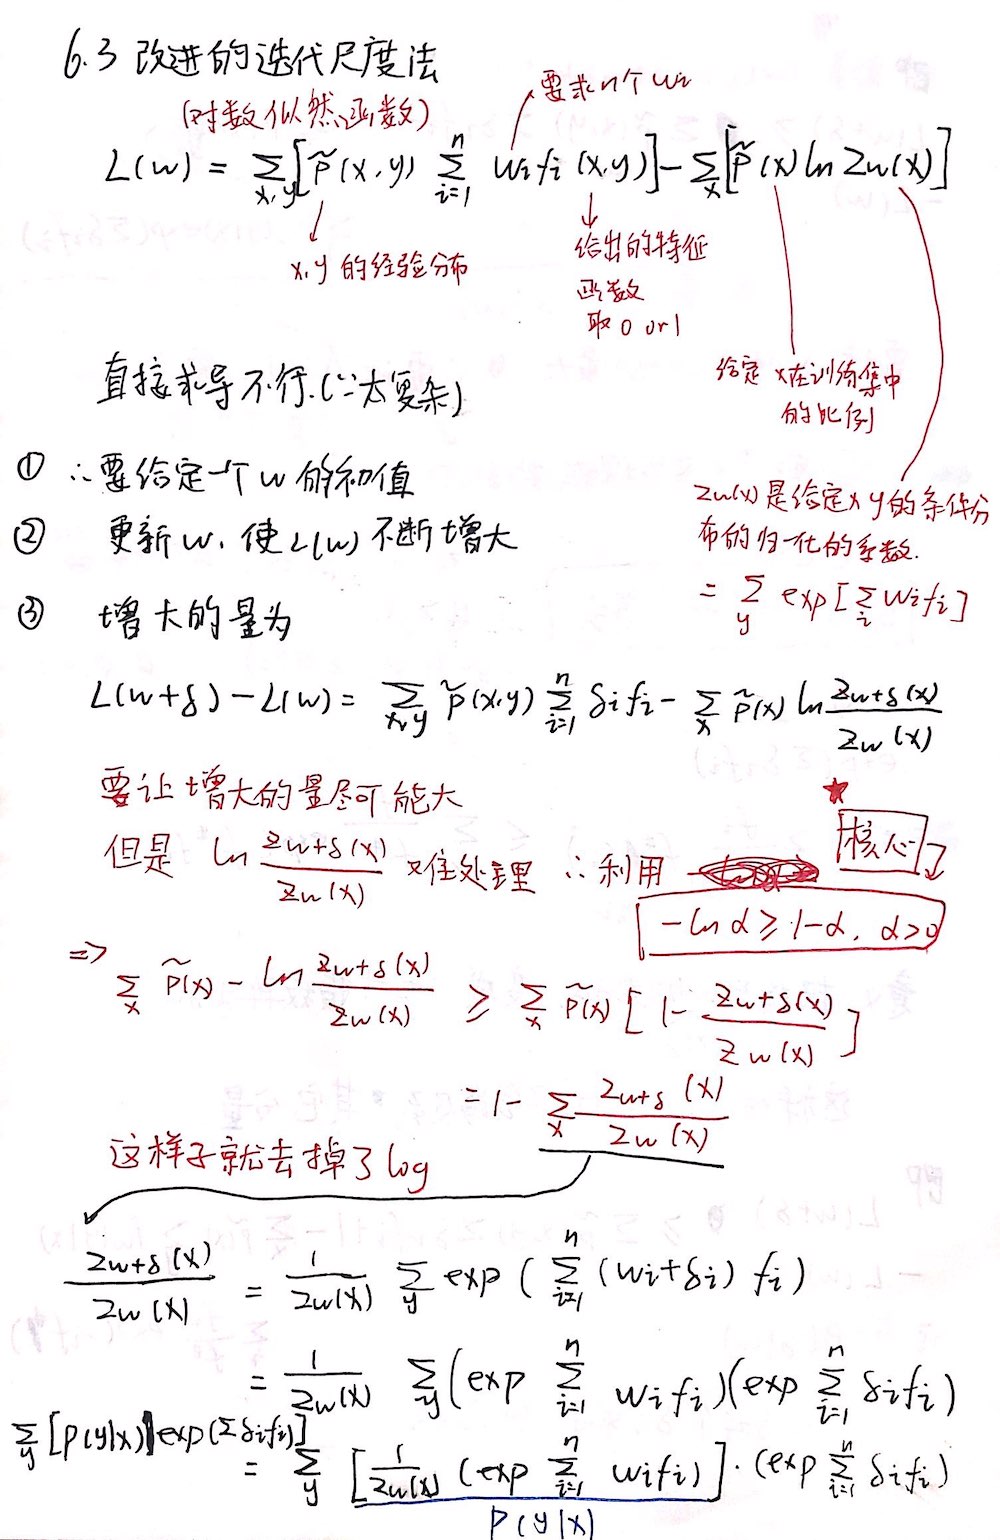 6.3 改进的迭代尺度法
(对数似然函数)
要求n个 wi
L(w) = Σx,y [P̃(x,y) Σi=1^n wifi(x,y)] - Σx [P̃(x) ln Zw(x)]
x,y 的经验分布
给出的特征
函数
取 0 or 1
给定 x在训练集中
的比例
直接求导不行.(∵太复杂)
① ∴要给定一个 w 的初值
Zw(x)是给定x y的条件分
布的归一化的系数.
= Σy exp[Σi wifi]
② 更新 w, 使L(w) 不断增大
③ 增大的量为
L(w+δ) - L(w) = Σx,y P̃(x,y) Σi=1^n δifi - Σx P̃(x) ln Zw+δ(x)/Zw(x)
要让增大的量尽可能大
但是 ln Zw+δ(x)/Zw(x) 难处理 ∴利用
★ 核心
-ln α ≥ 1-α, α>0
=> Σx P̃(x) - ln Zw+δ(x)/Zw(x) ≥ Σx P̃(x) [1 - Zw+δ(x)/Zw(x)]
= 1 - Σx Zw+δ(x)/Zw(x)
这样子就去掉了log
Zw+δ(x)/Zw(x) = 1/Zw(x) Σy exp (Σi=1^n (wi+δi) fi)
= 1/Zw(x) Σy (exp Σi=1^n wifi)(exp Σi=1^n δifi)
Σy [P(y|x) exp(Σδifi)]
= Σy [1/Zw(x) (exp Σi=1^n wifi)] · (exp Σi=1^n δifi)
P(y|x)